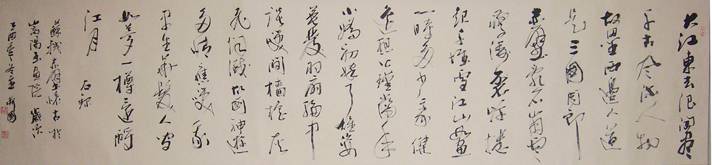 大江東去浪淘盡
千古風流人物
故壘西邊人道
是三國周郎
赤壁亂石崩雲
驚濤裂岸捲
起千堆雪江山如畫
一時多少豪傑
遙想公瑾當年
小喬初嫁了雄姿
英發羽扇綸巾
談笑間檣櫓灰
飛煙滅故國神遊
多情應笑我
早生華髮人間
如夢一樽還酹
江月
蘇軾赤壁懷古於